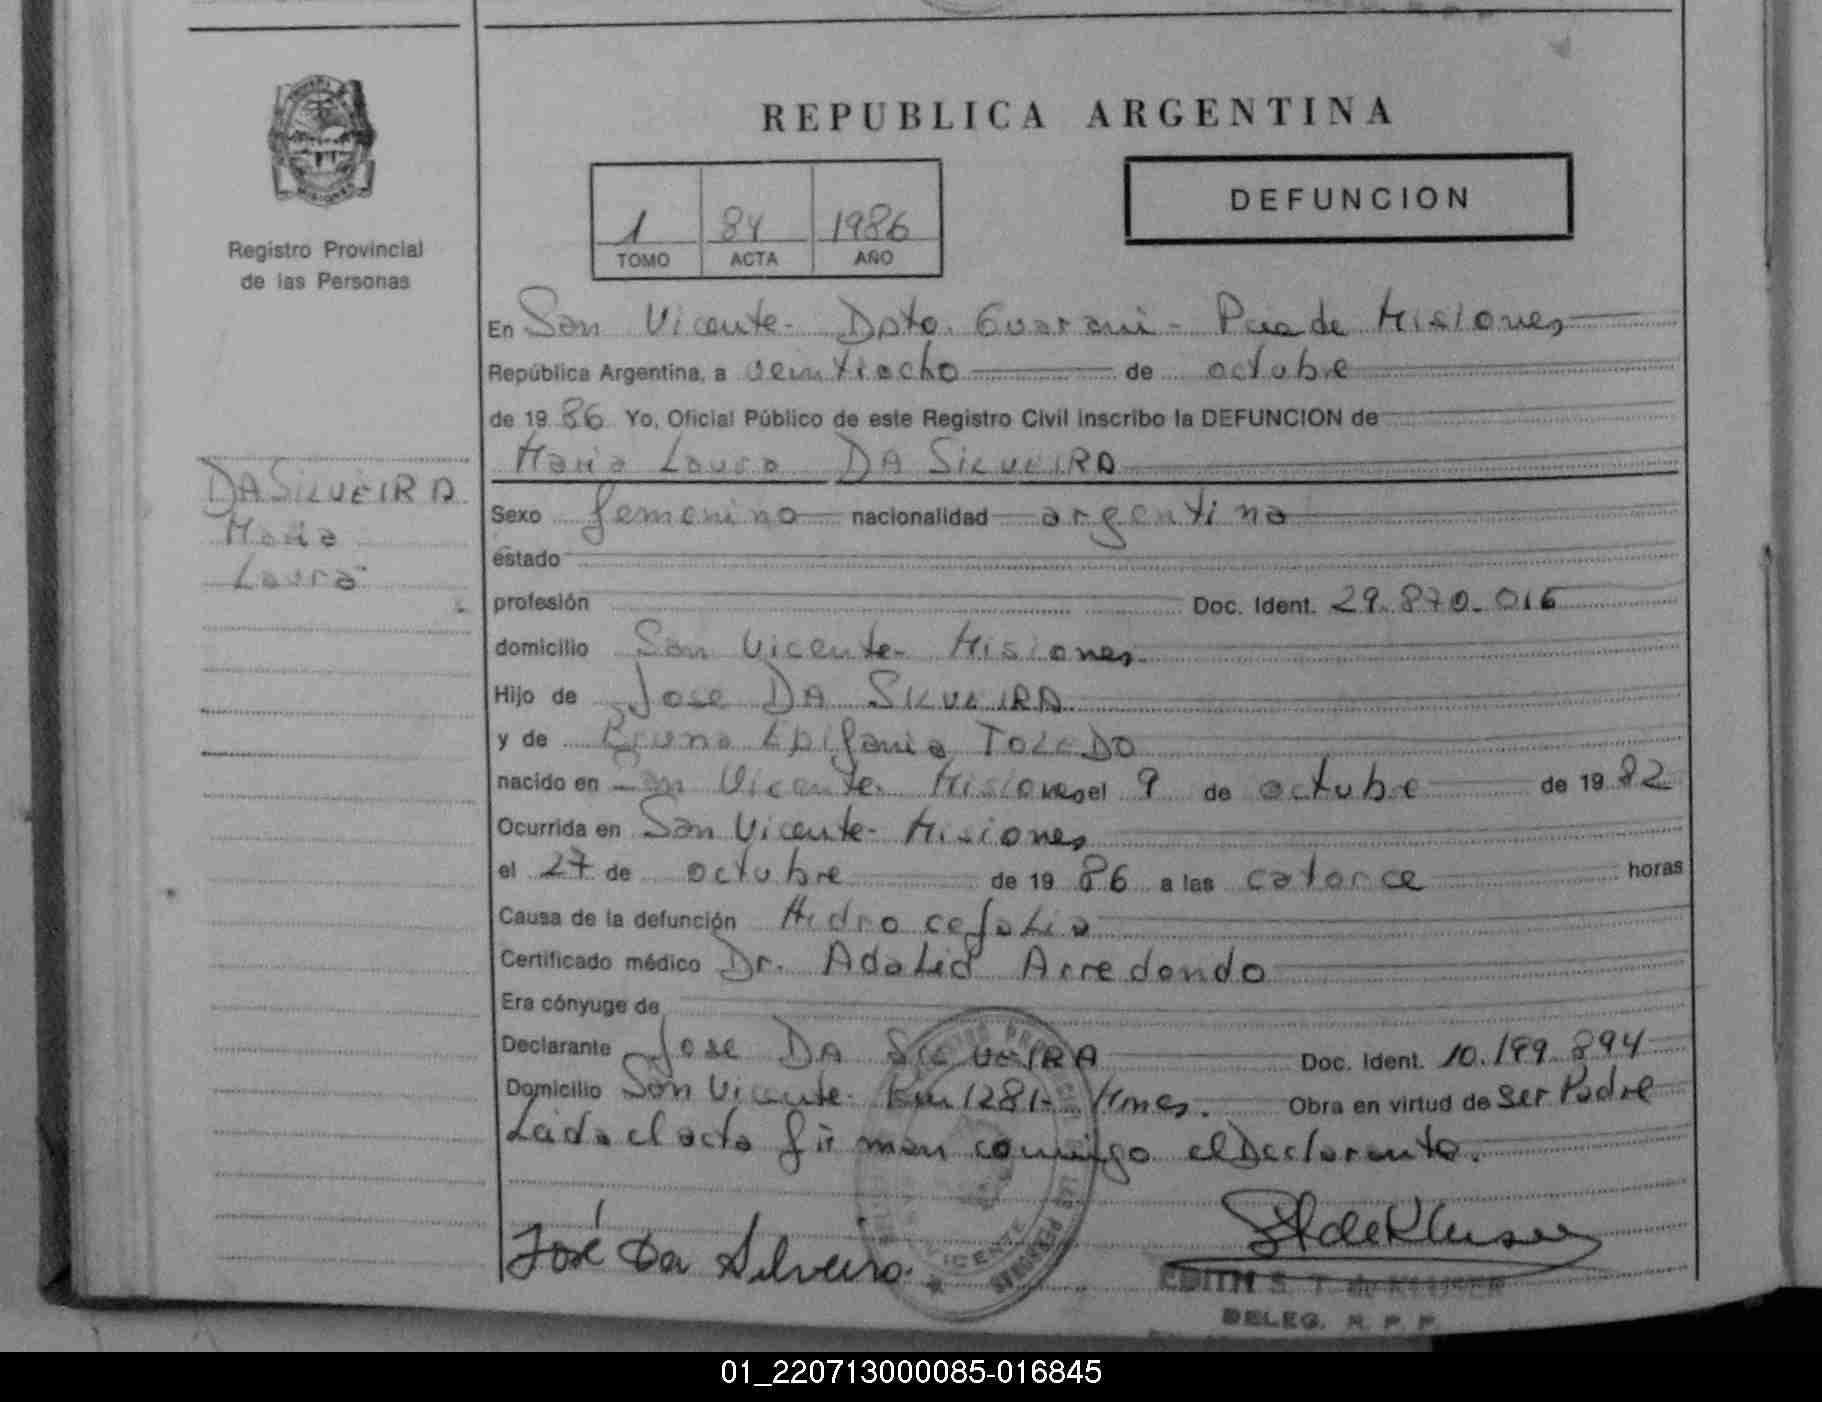 REPUBLICA ARGENTINA
DEFUNCION
1 84 1986
TOMO ACTA AÑO
Registro Provincial
de las Personas
En San Vicente - Dpto. Guarani - Pcia de Misiones
República Argentina, a veintiocho de octubre
de 19 86 Yo, Oficial Público de este Registro Civil inscribo la DEFUNCION de
Maria Laura DA SILVEIRA
DA SILVEIRA
Maria
Laura
Sexo femenino nacionalidad argentina
estado
profesión Doc. Ident. 29.870.016
domicilio San Vicente - Misiones
Hijo de Jose DA SILVEIRA
y de Bruna Epifania TOLEDO
nacido en San Vicente - Misiones el 9 de octubre de 19 82
Ocurrida en San Vicente - Misiones
el 27 de octubre de 19 86 a las catorce horas
Causa de la defunción Hidrocefalia
Certificado médico Dr. Adalid Arredondo
Era cónyuge de
Declarante Jose DA SILVEIRA Doc. Ident. 10.199.894
Domicilio San Vicente - Km 1281 - Mnes. Obra en virtud de ser Padre
Leida el acta firman conmigo el Declarante.
José Da Silveira
EDITH S. T. de KLUSER
DELEG. R. P. P.
01_220713000085-016845